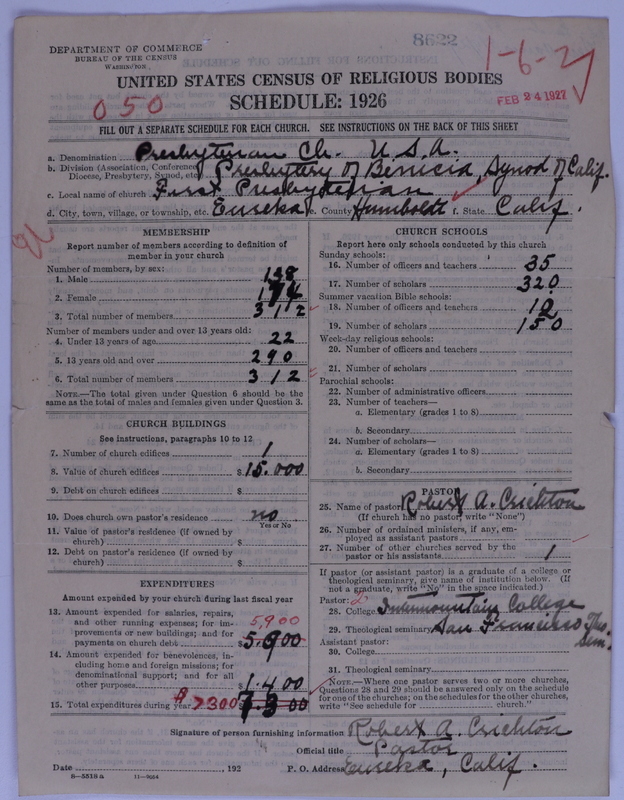 8622
1-6-27
DEPARTMENT OF COMMERCE
BUREAU OF THE CENSUS
WASHINGTON
UNITED STATES CENSUS OF RELIGIOUS BODIES
SCHEDULE: 1926
050
FEB 24 1927
FILL OUT A SEPARATE SCHEDULE FOR EACH CHURCH. SEE INSTRUCTIONS ON THE BACK OF THIS SHEET
a. Denomination Presbyterian Ch. U.S.A.
b. Division (Association, Conference, Diocese, Presbytery, Synod, etc.) Presbytery of Benicia, Synod of Calif.
c. Local name of church First Presbyterian
d. City, town, village, or township, etc. Eureka e. County Humboldt f. State Calif.
MEMBERSHIP
Report number of members according to definition of
member in your church
Number of members, by sex:
1. Male 138
2. Female 174
3. Total number of members 312
Number of members under and over 13 years old:
4. Under 13 years of age 22
5. 13 years old and over 290
6. Total number of members 312
NOTE.—The total given under Question 6 should be
same as the total of males and females given under Question 3.
CHURCH BUILDINGS
See instructions, paragraphs 10 to 12
7. Number of church edifices 1
8. Value of church edifices $ 15.000
9. Debt on church edifices $
10. Does church own pastor's residence no
Yes or No
11. Value of pastor's residence (if owned by
church) $
12. Debt on pastor's residence (if owned by
church) $
EXPENDITURES
Amount expended by your church during last fiscal year
13. Amount expended for salaries, repairs,
and other running expenses; for im- 5,900
provements or new buildings; and for
payments on church debt $ 5.900
14. Amount expended for benevolences, in-
cluding home and foreign missions; for
denominational support; and for all
other purposes 1.400
15. Total expenditures during year $7300 $ 7300
CHURCH SCHOOLS
Report here only schools conducted by this church
Sunday schools:
16. Number of officers and teachers 35
17. Number of scholars 320
Summer vacation Bible schools:
18. Number of officers and teachers 10
19. Number of scholars 150
Week-day religious schools:
20. Number of officers and teachers
21. Number of scholars
Parochial schools:
22. Number of administrative officers
23. Number of teachers—
a. Elementary (grades 1 to 8)
b. Secondary
24. Number of scholars—
a. Elementary (grades 1 to 8)
b. Secondary
PASTOR
25. Name of pastor Robert A. Crichton
(If church has no pastor, write "None")
26. Number of ordained ministers, if any, em-
ployed as assistant pastors
27. Number of other churches served by the
pastor or his assistants 1
If pastor (or assistant pastor) is a graduate of a college or
theological seminary, give name of institution below. (If
not a graduate, write "No" in the space indicated.)
Pastor: 2
28. College Intermountain College
29. Theological seminary San Francisco Theo. Sem.
Assistant pastor:
30. College
31. Theological seminary
NOTE.—Where one pastor serves two or more churches,
Questions 28 and 29 should be answered only on the schedule
for one of the churches; on the schedules for the other churches,
write "See schedule for church."
Signature of person furnishing information Robert A. Crichton
Official title Pastor
Date , 192 P. O. Address Eureka, Calif.
8—5518 a 11—9664